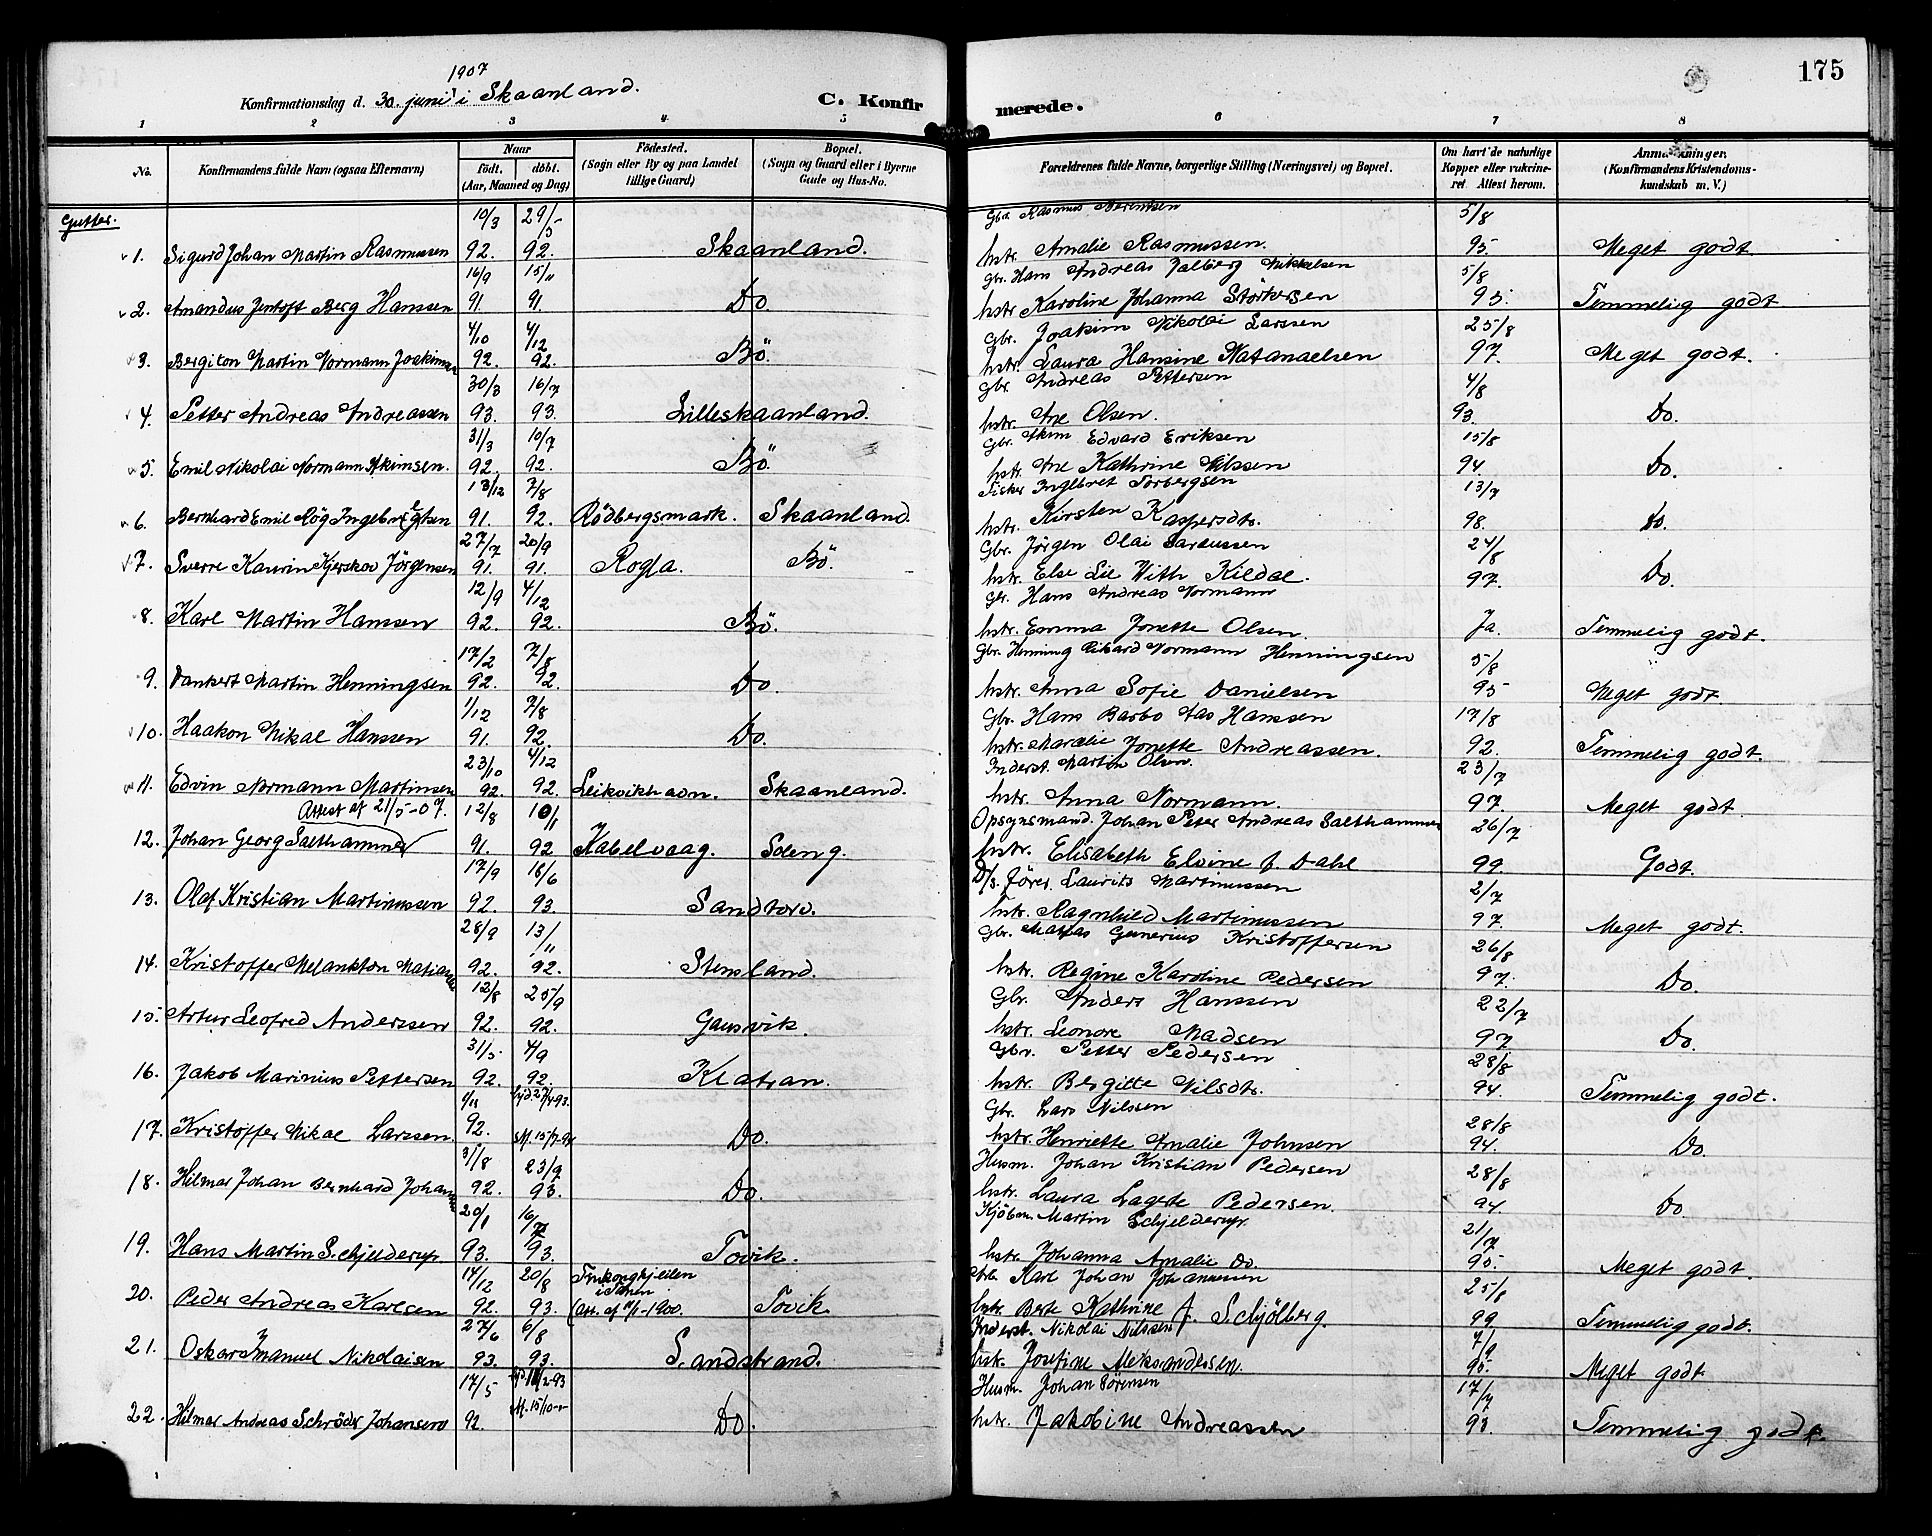 175
1907
Konfirmationsdag d. 30. juni i Skaanland.
C. Konfirmerede.
1 2 3 4 5 6 7 8
No.
Konfirmandens fulde Navn (ogsaa Efternavn)
Naar
födt. döbt.
(Aar, Maaned og Dag)
Födested.
(Sogn eller By og paa Landet tillige Gaard)
Bopæl.
(Sogn og Gaard eller i Byerne Gade og Hus-No.
Forældrenes fulde Navne, borgerlige Stilling (Næringsvei) og Bopæl.
Om havt de naturlige Kopper eller vakcineret. Attest herom.
Anmærkninger.
(Konfirmandens Kristendomskundskab m. V.)
Gutter.
10/3 29/5 Gbr. Rasmus Berentsen 5/8
1. Sigurd Johan Martin Rasmussen 92. 92. Skaanland. hstr. Amalie Rasmussen. 95. Meget godt.
16/9 15/11 Gbr. Hans Andreas Jalberg Mikkelsen 5/8
2. Amandus Jentoft Berg Hanssen 91. 91. Do. hstr. Karoline Johanna Störkersen 95. Temmelig godt
4/10 4/12 Gbr. Joakim Nikolai Larssen 25/8
3. Bergiton Martin Normann Joakimsen 92. 92. Bö. hstr. Laura Hansine Natanaelsen 97. Meget godt.
30/3 16/7 Gbr. Andreas Pettersen 4/8
4. Petter Andreas Andreassen 93. 93. Lilleskaanland. hstr. Ane Olsen. 93. Do.
31/3 10/7 Gbr. Akim Edvard Eriksen 15/8
5. Emil Nikolai Normann Akimsen. 92. 92. Bö. hstr. Ane Kathrine Nilssen 94. Do.
13/12 7/8 Fisker Ingebret Torbergsen 13/7
6. Bernhard Emil Rög Ingebrigtsen 91. 92. Rödbergsmark. Skaanland. hstr. Kirsten Kaspersdtr. 98. Do.
27/7 20/9 Gbr. Jörgen Olai 24/8
7. Sverre Kaurin Kjerskov Jörgensen 91. 91. Rogla. Bö. hstr. Else Lie With Kildal. 97. Do.
12/9 4/12 Gbr. Hans Andreas Normann
8. Karl Martin Hanssen 92. 92. Bö. hstr. Emma Jonette Olsen. Ja. Temmelig godt.
17/2 7/8 Gbr. Henning Rikard Normann Henningsen 5/8
9. Dankert Martin Henningsen 92. 92. Do. hstr. Anna Sofie Danielsen 95 Meget godt.
1/12 7/8 Gbr. Hans Barbo Aas Hanssen 17/8
10. Haakon Mikal Hanssen 91. 92. Do. hstr. Jonette Andreassen. 92. Temmelig godt.
23/10 4/12 Inderst. Martin Olsen. 23/7
11. Edvin Normann Martinsen 92. 92. Leikvikhavn. Skaanland. hstr. Anna Normann. 97. Meget godt.
Attest af 21/5-07. 12/8 10/1 Opsynsmand. Johan Peter Andreas Salthammer 26/7
12. Johan Georg Salthammer 91. 92 Kabelvaag. Soleng. hstr. Elisabeth Elvine f. Dahl 99. Godt.
17/9 18/6 D/s. förer. Laurits Martinussen 2/7
13. Olaf Kristian Martinussen 92. 93. Sandtorv. hstr. Ragnhild Martinussen 97. Meget godt.
28/9 13/11 Gbr. Matias Gunerius Kristoffersen 26/8
14. Kristoffer Melankton Matiassen 92. 92. Stensland. hstr. Regine Karoline Pedersen 97. Do.
12/8 25/9 Gbr. Anders Hanssen 22/7
15. Artur Leofred Anderssen 92. 92. Gausvik. hstr. Leonore Madsen 97 Do.
31/5 4/9 Gbr. Petter Pedersen 28/8
16. Jakob Marinius Pettersen 92. 92. Klatran. hstr. Bergitte Nilsdtr. 94. Temmelig godt.
1/11 Gbr. Lars Nilssen 28/8
17. Kristoffer Mikal Larssen. 92. Do. hstr. Henriette Amalie Johnsen 94. Do.
31/8 23/9 Husm. Johan Kristian Pedersen 28/8
18. Hilmar Johan Bernhard Johansen 92. 93. Do. hstr. Laura Lagede Pedersen. 94. Do
20/1 Kjöbm. Martin Schjelderup. 21/7
19. Hans Martin Schjelderup 93. 93. Tovik. hstr. Johanna Amalie Do. 95. Meget godt.
14/12 20/8 i Salten Karl Johan Johannessen 25/8
20. Peder Andreas Karlsen 92. 93. (Att. af 11/1-1900. Tovik. hstr. Berte Kathrine f. Schjölberg. 99 Temmelig godt.
27/6 6/8 Inderst. Nikolai Nilssen 7/9
21. Oskar Imanuel Nikolaisen 93. 93. Sandstrand. hstr. Josefine Aleksandersen. 95. Meget godt.
17/5 Husm. Johan Sörensen 17/7
22. Hilmar Andreas Schröder Johansen 92. Do. hstr. Jakobine Andreassen 93. Temmelig godt.